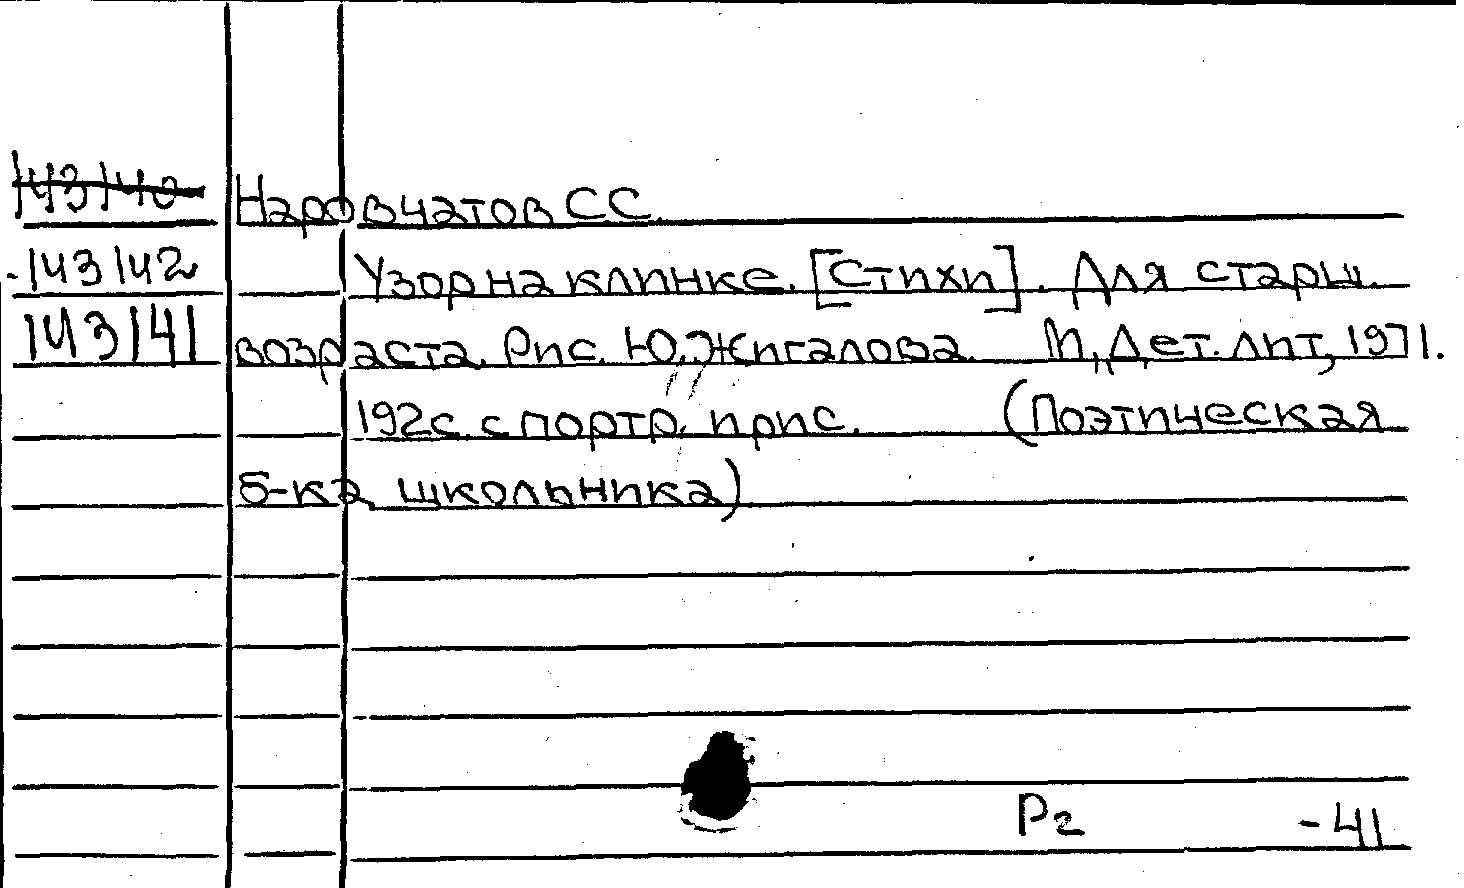 143140 Наровчатов СС.
143142 Узор на клинке. [Стихи]. Для старш.
143141 возраста. Рис. Ю. Жигалова. М, Дет. лит, 1971.
192с. с портр. и рис. (Поэтическая
б-ка школьника)
Р2 -41